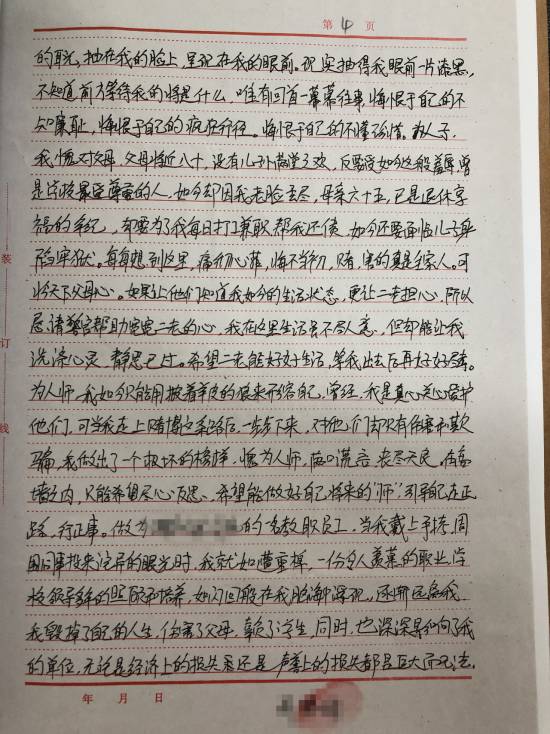 第 4 页
的耳光,抽在我的脸上,呈现在我的眼前。现实抽得我眼前一片漆黑,
不知道前方等待我的将是什么,唯有回首一幕幕往事,悔恨于自己的不
知廉耻,悔恨于自己的疯狂行径。悔恨于自己的不懂珍惜。为人子,
我愧对父母,父母将近八十,没有儿孙满堂之欢,反要受如今这般羞辱,曾
是学校最受尊重的人,如今却因我老脸丢尽,母亲六十五,已是退休享
福的年纪,却要为了我每日打工兼职,帮我还债,如今还要面临儿子身
陷牢狱。每每想到这里,痛彻心扉,悔不当初,赌,害的真是全家人。可
怜天下父母心。如果让他们知道我如今的生活状态,更让二老担心,所以
恳请警官帮助宽宽二老的心,我在这里生活虽不尽人意,但却能让我
洗涤心灵,静思己过。希望二老能好好生活,等我出去后再好好尽孝。
为人师,我如今只能用披着羊皮的狼来形容自己,曾经,我是真心关心爱护
他们,可当我走上赌博之路后,一步步下来,对他们却只有伤害和欺
骗,我做出了一个极坏的榜样,愧为人师,满口谎言,丧尽天良,在高
墙之内,只能希望尽心反思,希望能做好自己将来的“师”,引导自己走正
路,行正事。做为 的一名教职员工,当我戴上手铐,周
围同事投来诧异的眼光时,我就如遭重棒,一份令人羡慕的职业,学
校领导多年的照顾和培养,如闪回般在我脑海中浮现,还哪
我毁掉了自己的人生,伤害了父母,辜负了学生,同时,也深深
的单位,无论是经济上的损失还是声誉上的损失都是巨大而无法
年 月 日
装
订
线